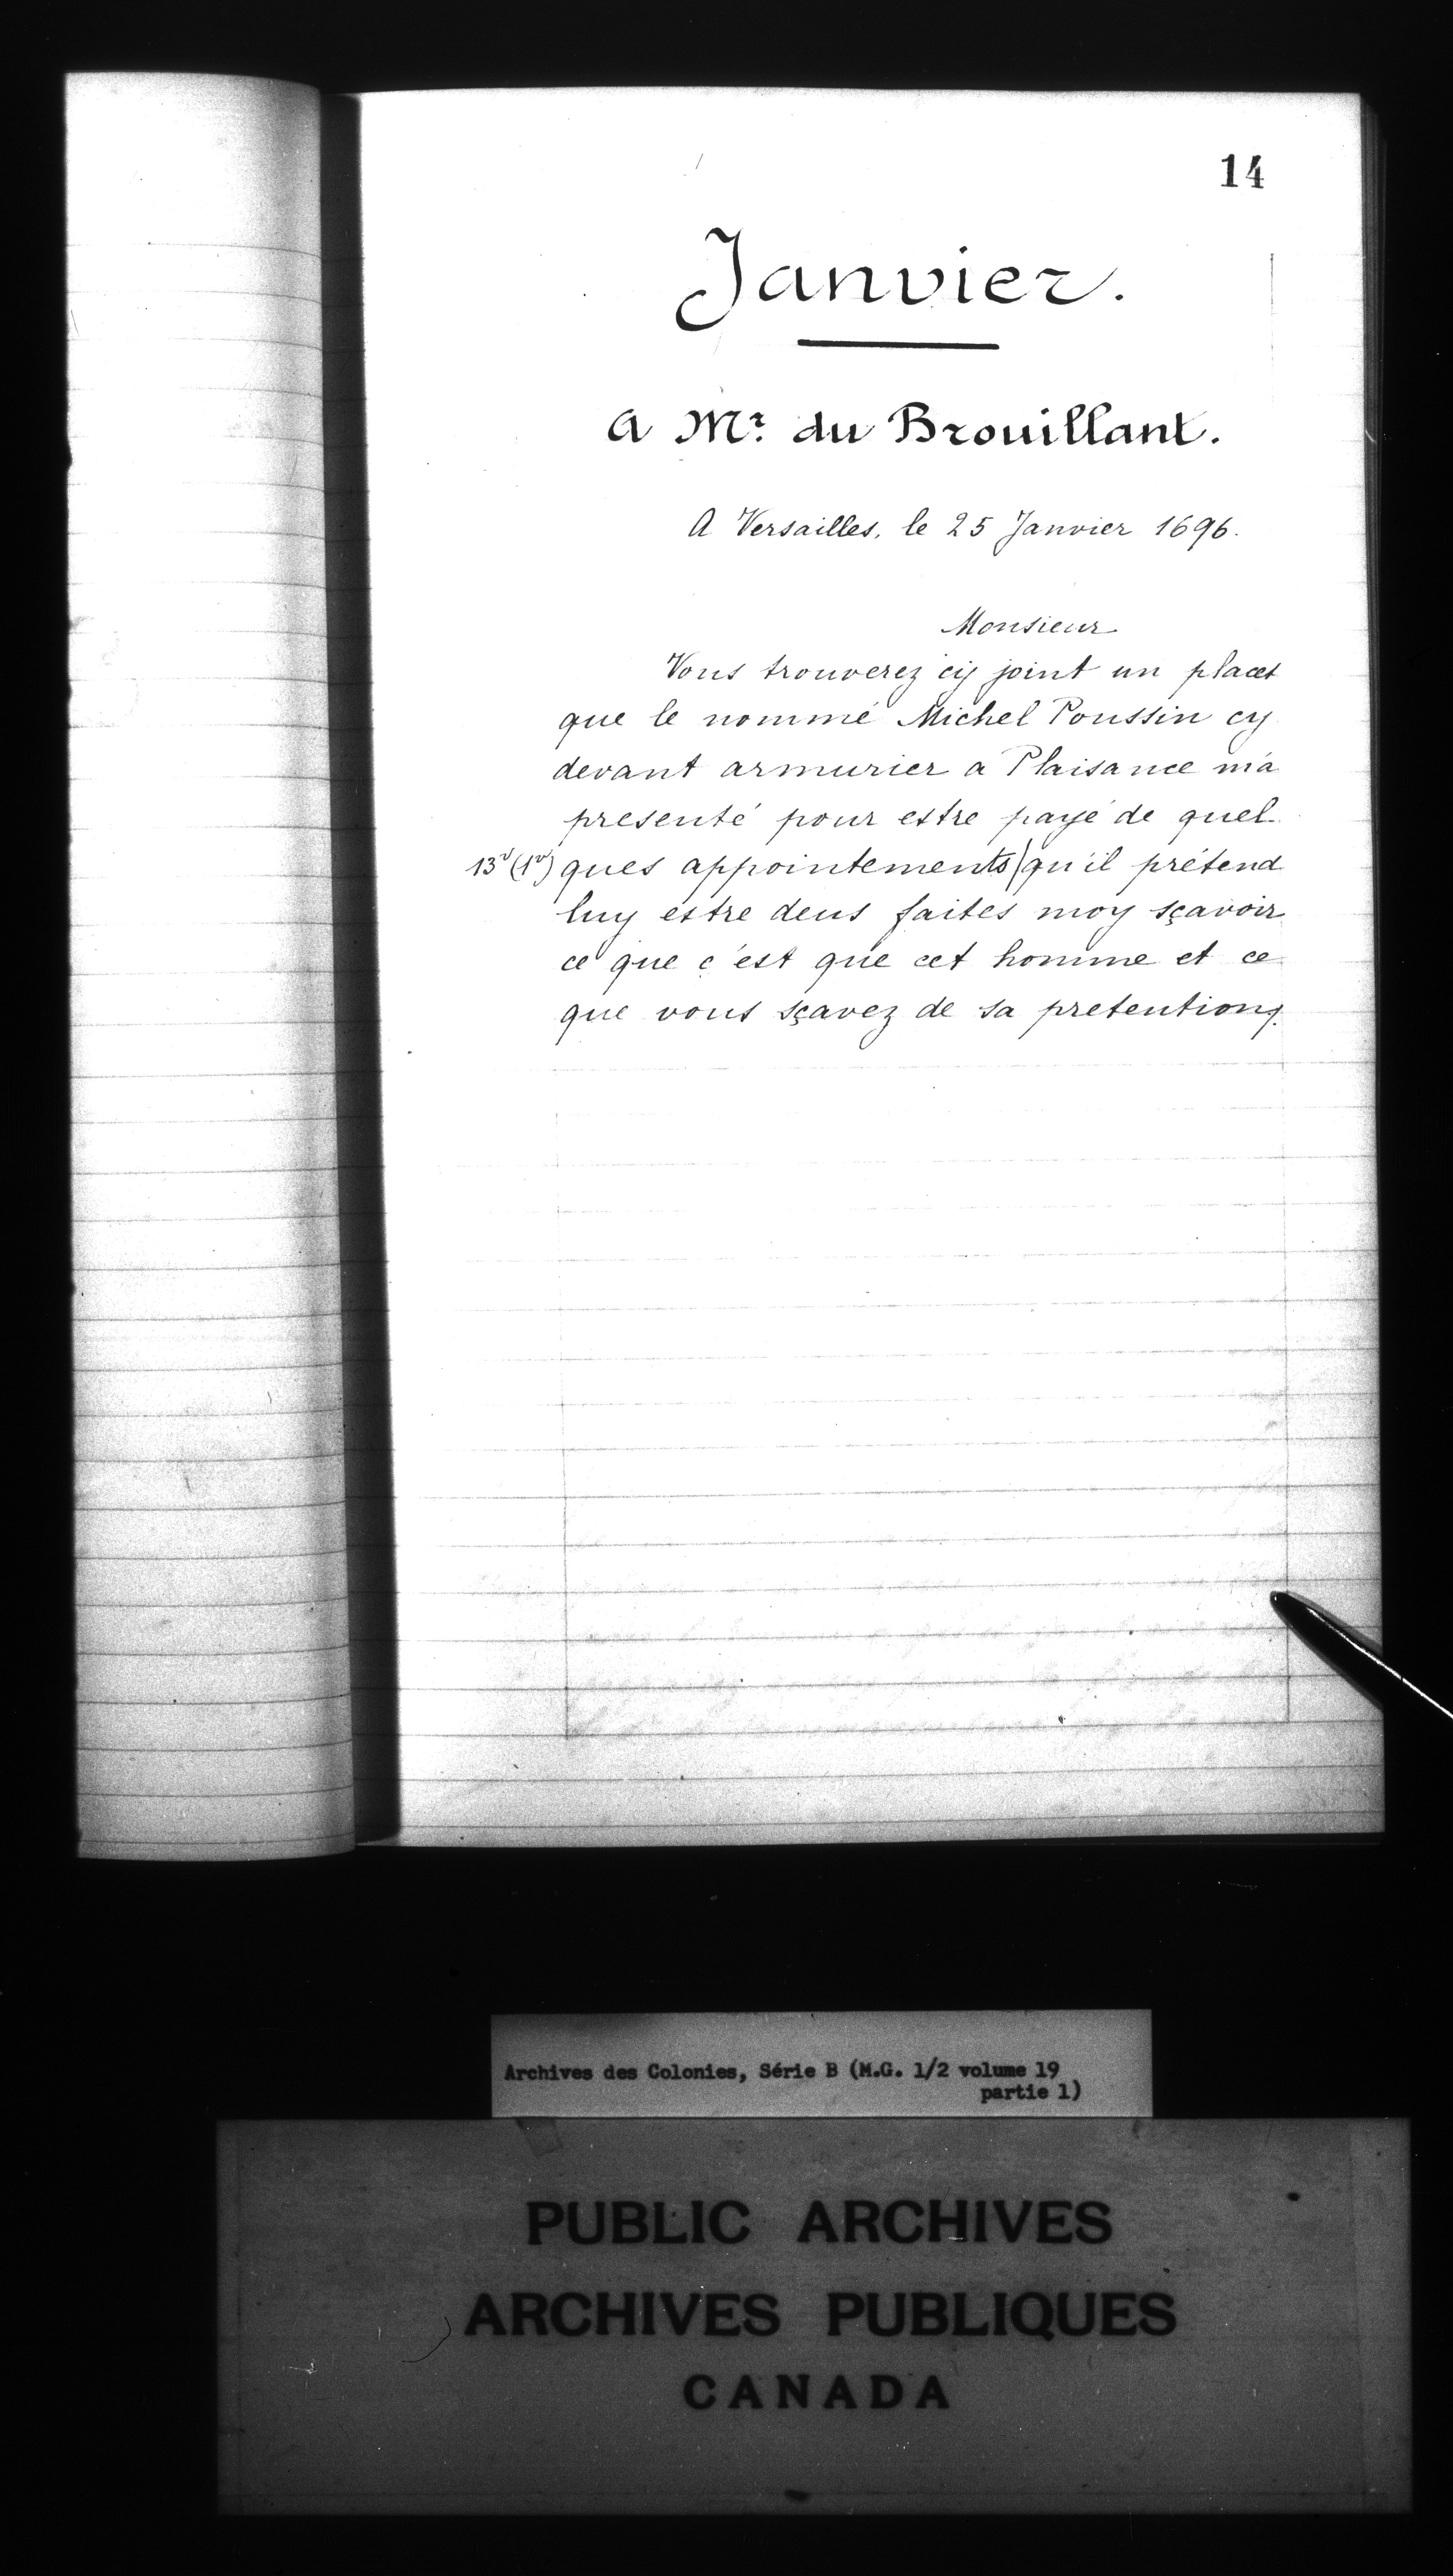 14
Janvier.
A Mr. du Brouillant.
A Versailles, le 25 Janvier 1696.
Monsieur
Vous trouverez cij joint un placet
que le nommé Michel Poussin cy
devant armurier a Plaisance m'a
presenté pour estre payé de quel-
13v (1v) ques appointements|qu'il prétend
luy estre deus faites moy sçavoir
ce que c'est que cet homme et ce
que vous sçavez de sa pretention.
Archives des Colonies, Série B (M.G. 1/2 volume 19
partie 1)
PUBLIC ARCHIVES
ARCHIVES PUBLIQUES
CANADA